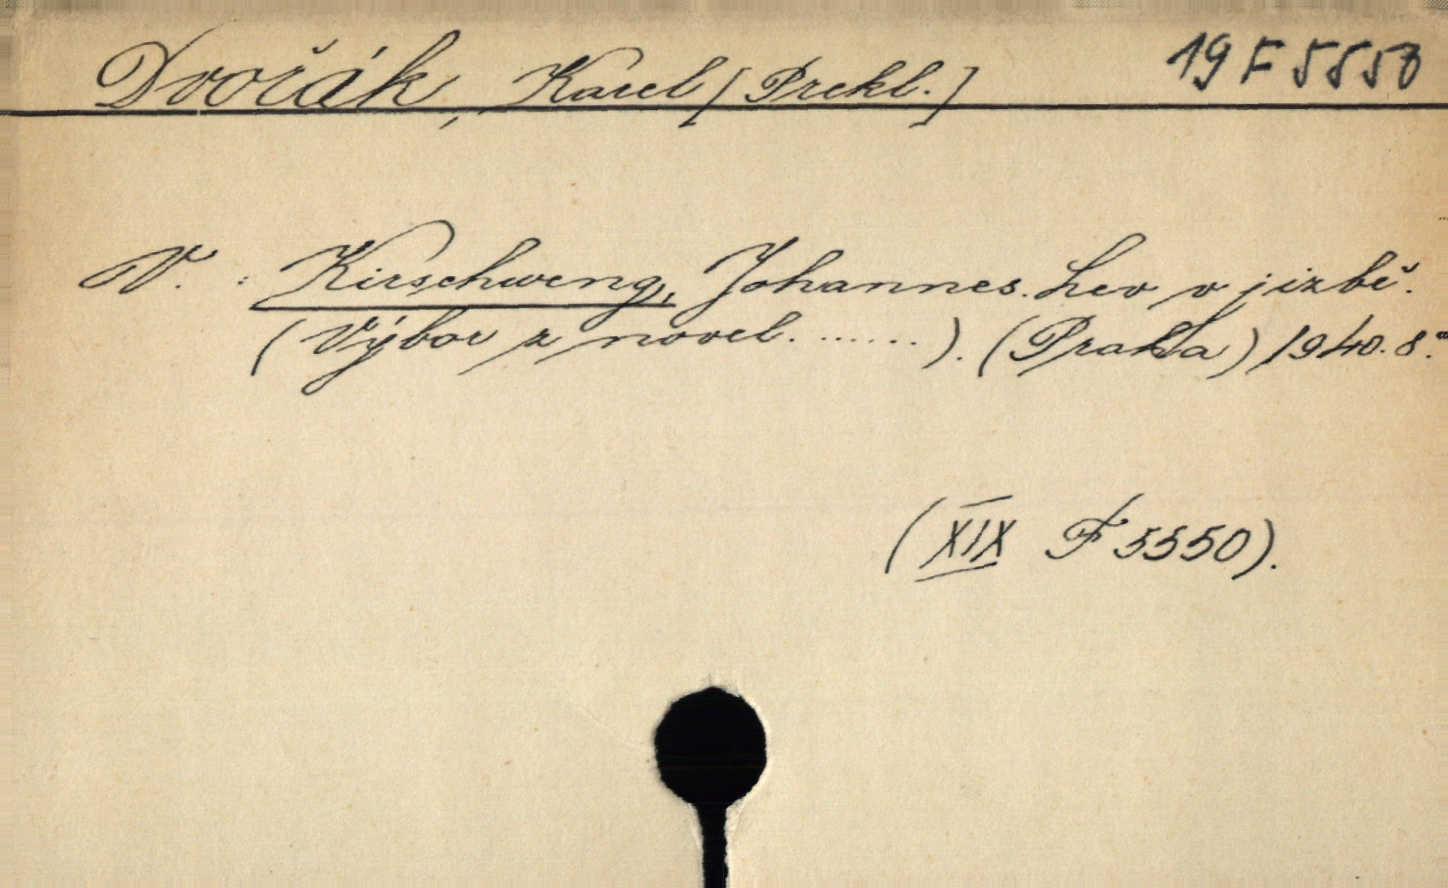 Dvořák, Karel [Prekl.] 19 F 5550
V. : Kirschweng, Johannes. Lev v jizbě.
(Výbor z novel. ......). (Praha) 1940. 8.°
(XIX F 5550).